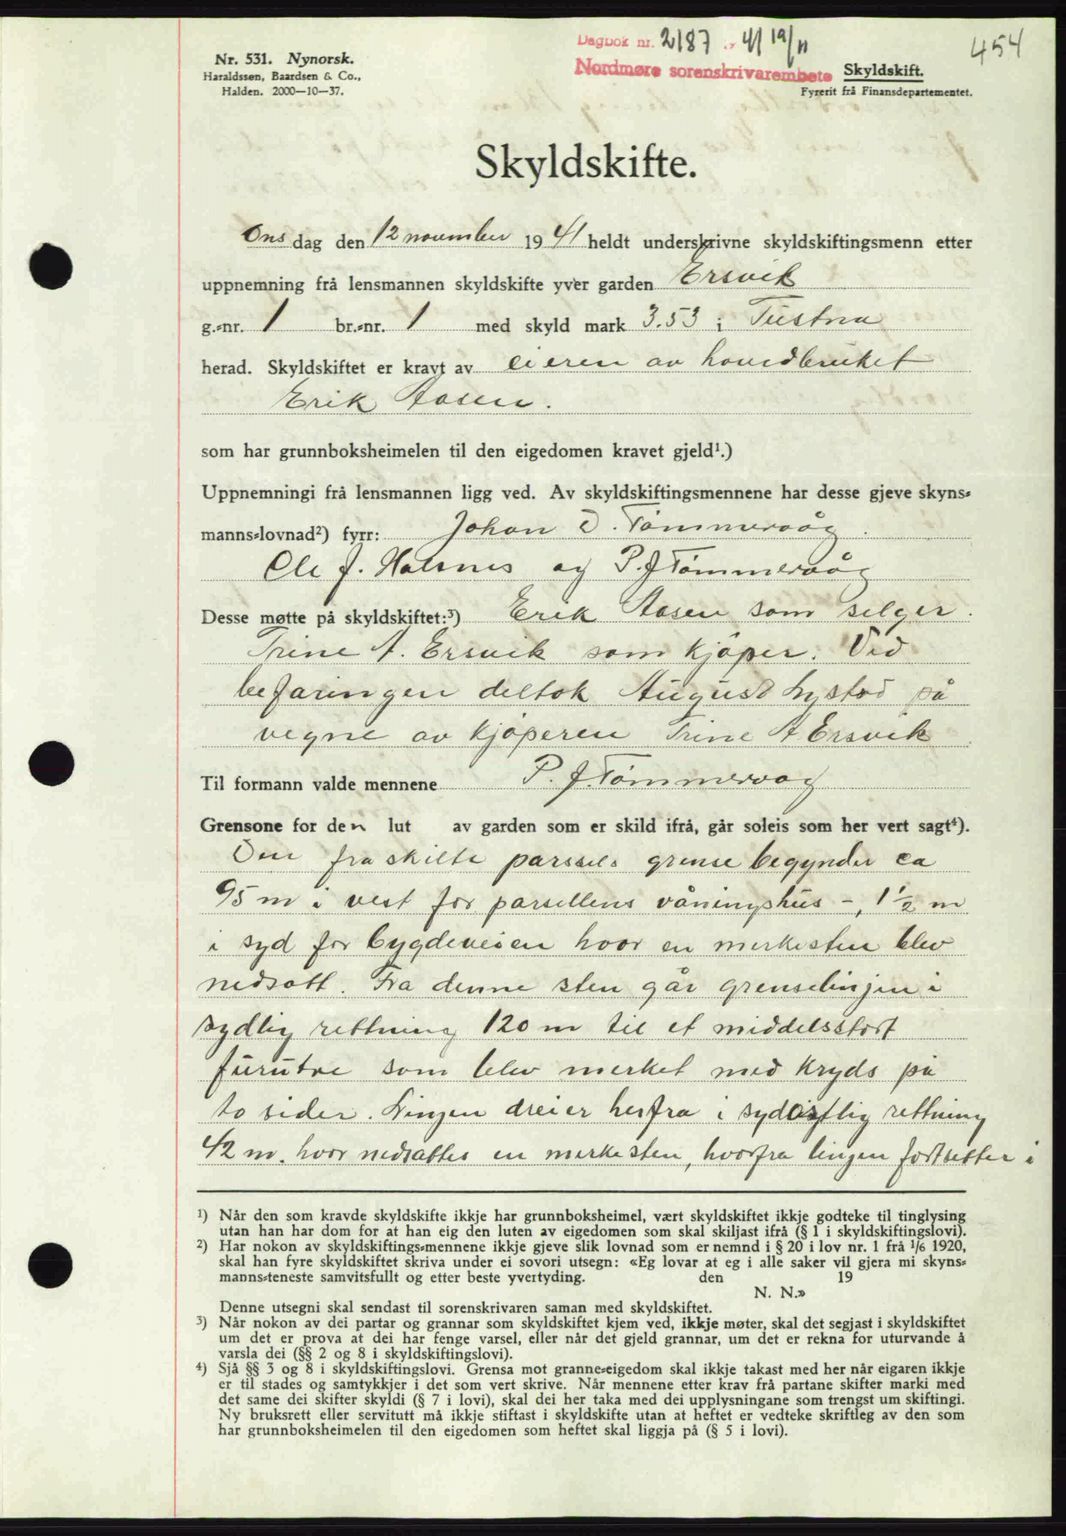 Nr. 531. Nynorsk.
Haraldssen, Baardsen & Co.,
Halden. 2000—10—37.
Dagbok nr. 2187 41 19/11
Nordmøre sorenskrivarembete
454
Skyldskift.
Fyrerit frå Finansdepartementet.
Skyldskifte.
Onsdag den 12 november 1941 heldt underskrivne skyldskiftingsmenn etter
uppnemning frå lensmannen skyldskifte yver garden Ersvik
g.-nr. 1 br.-nr. 1 med skyld mark 3.53 i Tustna
herad. Skyldskiftet er kravt av eieren av hovedbruket
Erik Aasen.
som har grunnboksheimelen til den eigedomen kravet gjeld¹.)
Uppnemningi frå lensmannen ligg ved. Av skyldskiftingsmennene har desse gjeve skyns-
manns-lovnad²) fyrr: Johan D. Tømmervåg.
Ole J. Halsnes og P. J Tømmervåg
Desse møtte på skyldskiftet:³) Erik Aasen som selger.
Trine A. Ersvik som kjøper. Ved
befaringen deltok August Lystad på
vegne av kjøperen Trine A Ersvik
Til formann valde mennene P. J. Tømmervåg
Grensone for den lut av garden som er skild ifrå, går soleis som her vert sagt⁴).
Den fraskilte parsels grense begynder ca
95 m i vest for parsellens våningshus -, 1 1/2 m
i syd for bygdeveien hvor en merkesten blev
nedsatt. Fra denne sten går grenselinjen i
sydlig rettning 120 m til et middelsstort
furutre som blev merket med kryds på
to sider. Lingen dreier herfra i sydøstlig rettning
42 m. hvor nedsattes en merkesten, hvorfra lingen fortsetter i
¹) Når den som kravde skyldskifte ikkje har grunnboksheimel, vært skyldskiftet ikkje godteke til tinglysing
utan han har dom for at han eig den luten av eigedomen som skal skiljast ifrå (§ 1 i skyldskiftingslovi).
²) Har nokon av skyldskiftings-mennene ikkje gjeve slik lovnad som er nemnd i § 20 i lov nr. 1 frå 1/6 1920,
skal han fyre skyldskiftet skriva under ei sovori utsegn: «Eg lovar at eg i alle saker vil gjera mi skyns-
manns-teneste samvitsfullt og etter beste yvertyding. den 19
N. N.»
Denne utsegni skal sendast til sorenskrivaren saman med skyldskiftet.
³) Når nokon av dei partar og grannar som skyldskiftet kjem ved, ikkje møter, skal det segjast i skyldskiftet
um det er prova at dei har fenge varsel, eller når det gjeld grannar, um det er rekna for uturvande å
varsla dei (§§ 2 og 8 i skyldskiftingslovi).
⁴) Sjå §§ 3 og 8 i skyldskiftingslovi. Grensa mot granne-eigedom skal ikkje takast med her når eigaren ikkje
er til stades og samtykkjer i det som vert skrive. Når mennene etter krav frå partane skifter marki med
det same dei skifter skyldi (§ 7 i lovi), skal dei her taka med dei upplysningane som trengst um skiftingi.
Ny bruksrett eller servitutt må ikkje stiftast i skyldskifte utan at heftet er vedteke skriftleg av den som
har grunnboksheimelen til den eigedomen som heftet skal liggja på (§ 5 i lovi).